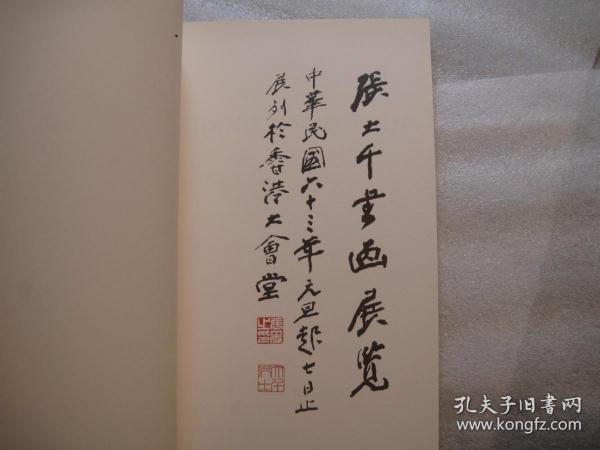 張大千書画展览
中華民國六十三年元旦起七日止
展列於香港大會堂
孔夫子旧书网
www.kongfz.com